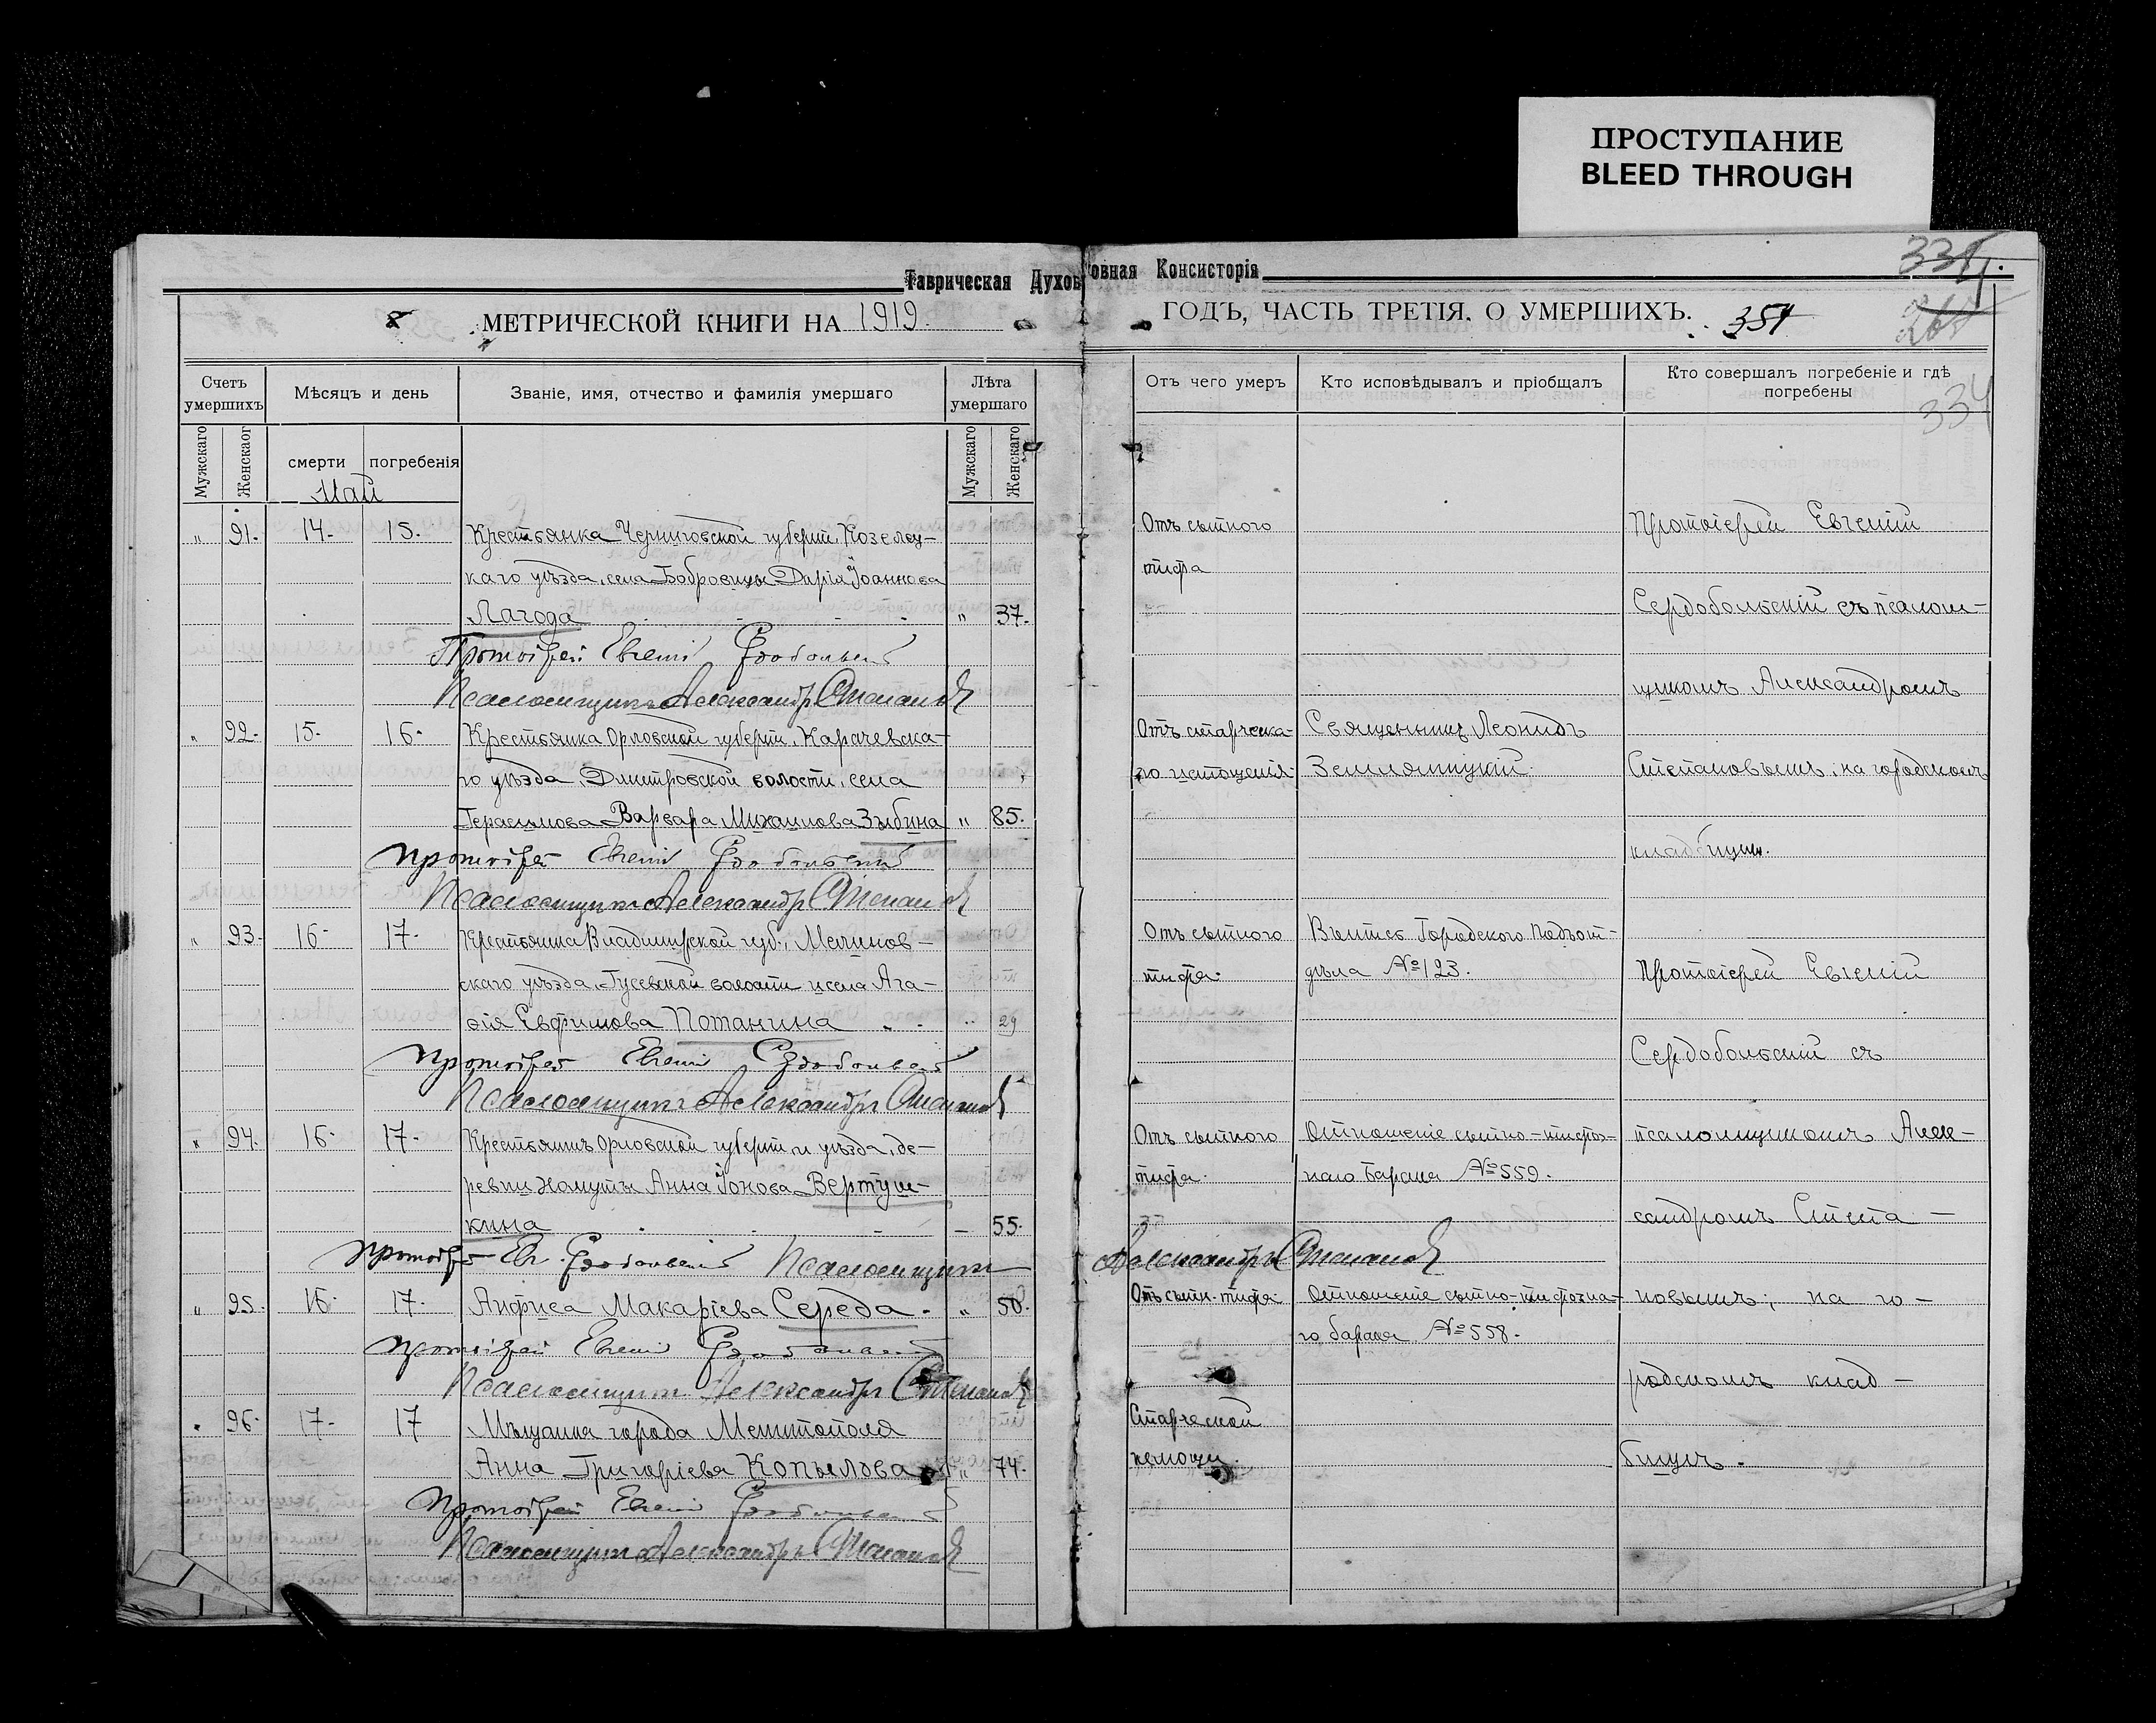 ПРОСТУПАНИЕ
BLEED THROUGH
Таврическая Духовная Консисторія
МЕТРИЧЕСКОЙ КНИГИ НА 1919.
ГОДЪ, ЧАСТЬ ТРЕТІЯ, О УМЕРШИХЪ.
354
334
Счетъ умершихъ
Мѣсяцъ и день
Званіе, имя, отчество и фамилія умершаго
Лѣта умершаго
Отъ чего умеръ
Кто исповѣдывалъ и пріобщалъ
Кто совершалъ погребеніе и гдѣ погребены
Мужскаго
Женскаог
смерти
погребенія
Мужскаго
Женскаго
Май
„ 91. 14. 15. Крестьянка Черниговской губерніи, Козелец-
каго уѣзда, села Бобровицы Дарія Іоаннова
Лагода „ 37.
Протоіерей Евгеній Сердобольскій
Псаломщикъ Александръ Степановъ
„ 92. 15. 16. Крестьянка Орловской губерніи, Карачевска-
го уѣзда, Дмитровской волости, села
Герасимова Варвара Михаилова Зыбина „ 85.
Протоіерей Евгеній Сердобольскій
Псаломщикъ Александръ Степановъ
„ 93. 16. 17. Крестьянка Владимірской губ.,
скаго уѣзда, Гусевской волости и села Ага-
ѳія Евфимова Потанина 29
Протоіерей Евгеній Сердобольскій
Псаломщикъ Александръ Степановъ
„ 94. 16. 17. Орловской губерніи и уѣзда, де-
ревни Хомуты Анна Іонова Вертуш-
кина 55.
Протоіерей Евг. Сердобольскій Псаломщикъ
Александръ Степановъ
„ 95. 16. 17. Анфиса Макаріева Середа. „ 50.
Протоіерей Евгеній Сердобольскій
Псаломщикъ Александръ Степановъ
„ 96. 17. 17 Мѣщанка города Мелитополя
Анна Григоріева Копылова „ 74.
Протоіерей Евгеній Сердобольскій
Псаломщикъ Александръ Степановъ
Отъ сыпного
тифа
Отъ старческа-
го истощенія.
Священникъ Леонидъ
Земляницкій.
Отъ сыпного
тифа.
Городского Подъот-
дѣла № 123.
Отъ сыпного
тифа.
Отношеніе сыпно-тифоз-
наго барака № 559.
Отъ сыпн. тифа.
Отношеніе сыпно-тифозна-
го барака № 558.
Старческой
немощи.
Протоіерей Евгеній
Сердобольскій съ псалом-
щикомъ Александромъ
Степановымъ; на городскомъ
кладбищѣ.
Протоіерей Евгеній
Сердобольскій съ
псаломщикомъ Алек-
сандромъ Степа-
новымъ; на го-
родскомъ клад-
бищѣ.